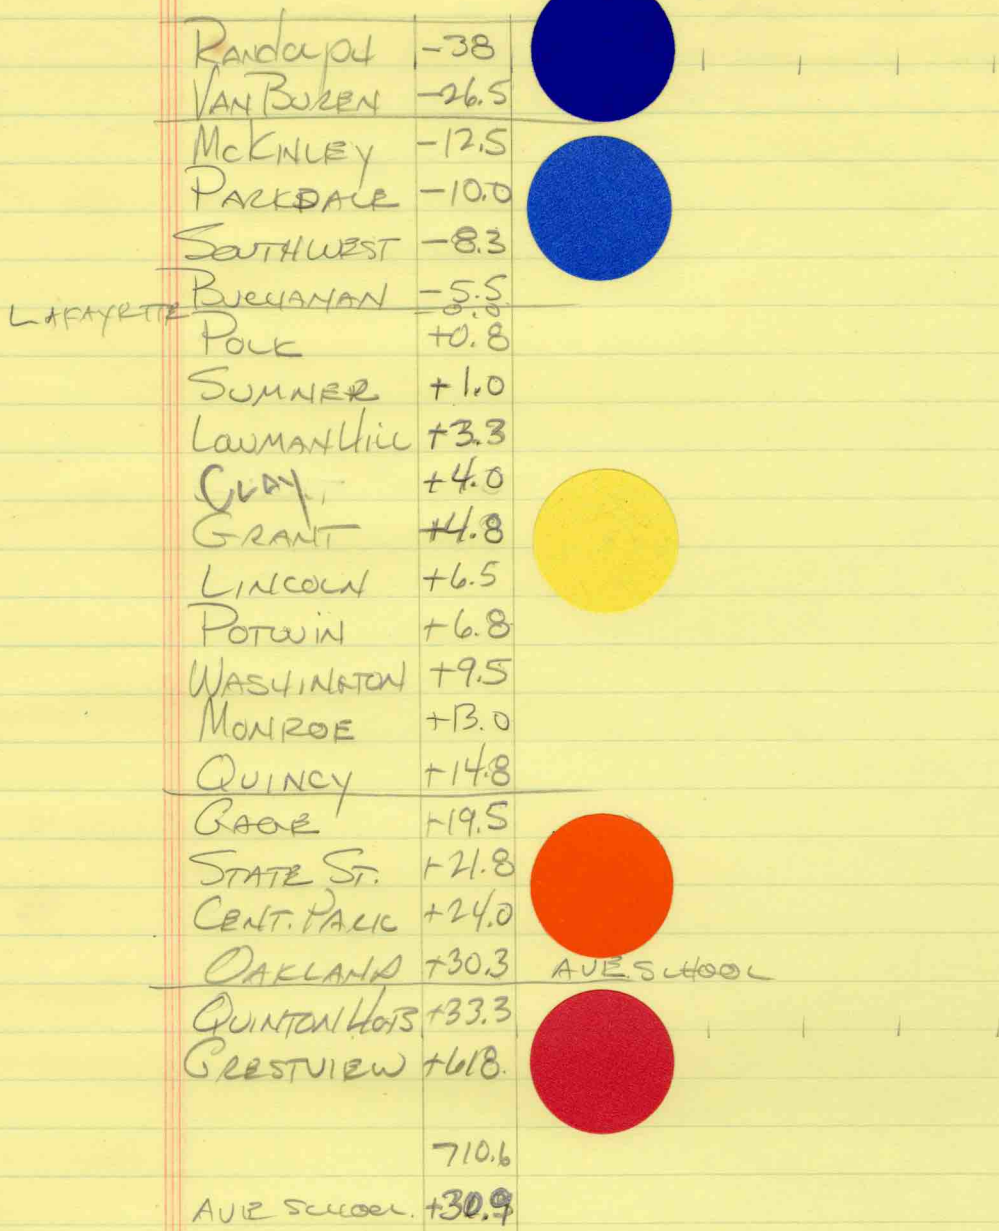 RANDOLPH -38
VAN BUREN -26.5
MCKINLEY -12.5
PARKDALE -10.0
SOUTHWEST -8.3
BUCHANAN -5.5
LAFAYETTE 0.0
POLK +0.8
SUMNER +1.0
LOWMAN HILL +3.3
CLAY +4.0
GRANT +4.8
LINCOLN +6.5
POTWIN +6.8
WASHINGTON +9.5
MONROE +13.0
QUINCY +14.8
GAGE +19.5
STATE ST. +21.8
CENT. PARK +24.0
OAKLAND +30.3 AVE. SCHOOL
QUINTON HGTS +33.3
CRESTVIEW +618.
710.6
AVE SCHOOL. +30.9